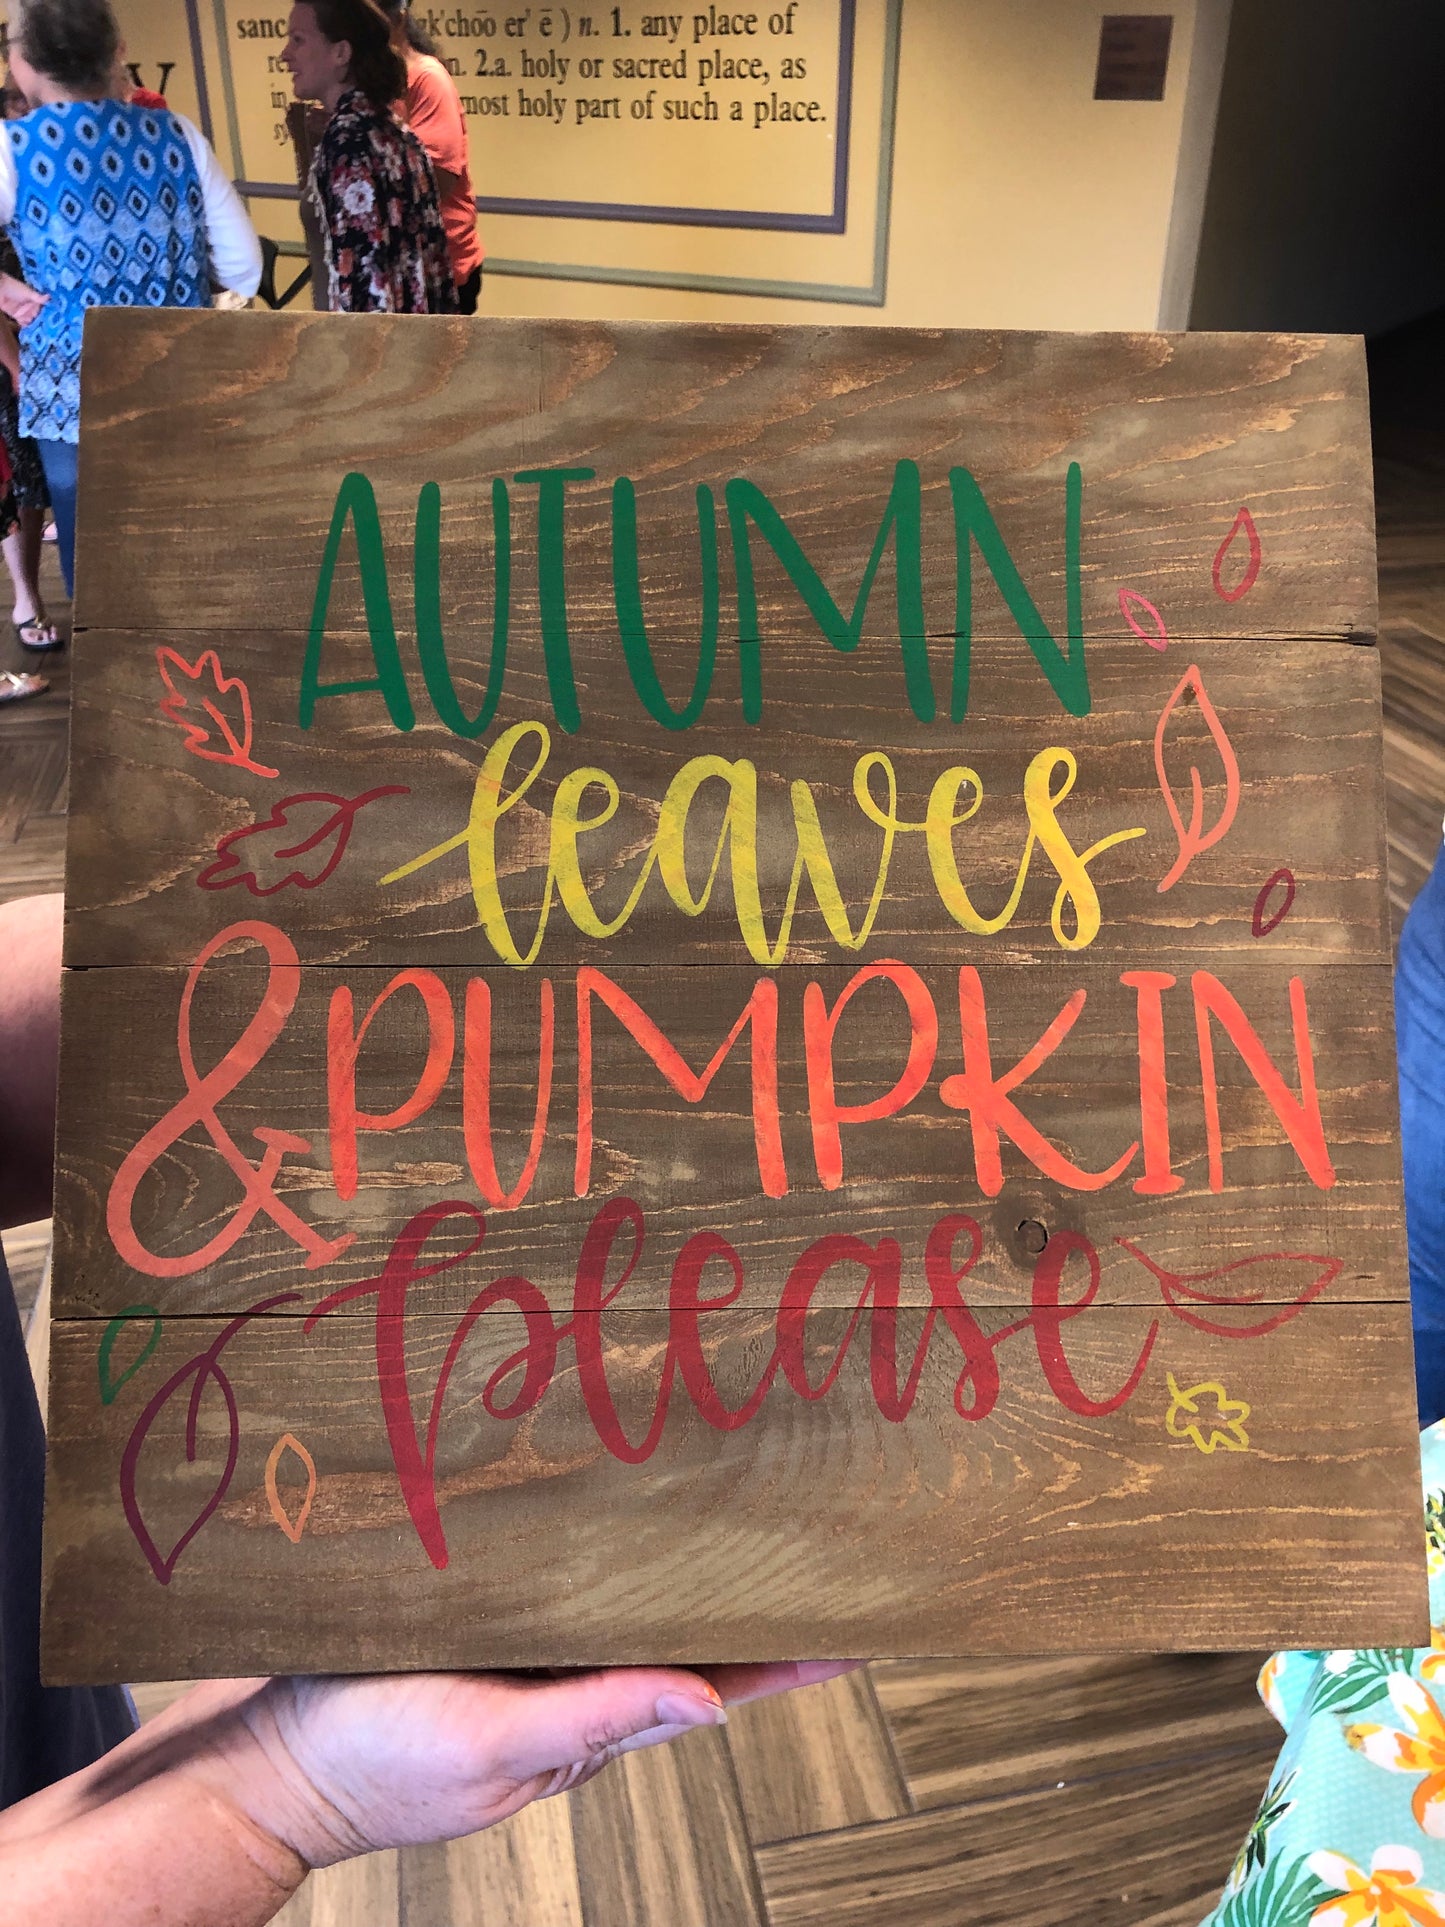 gk'choo er' ē ) n. 1. any place of
n. 2.a. holy or sacred place, as
most holy part of such a place.
AUTUMN
leaves
& PUMPKIN
please